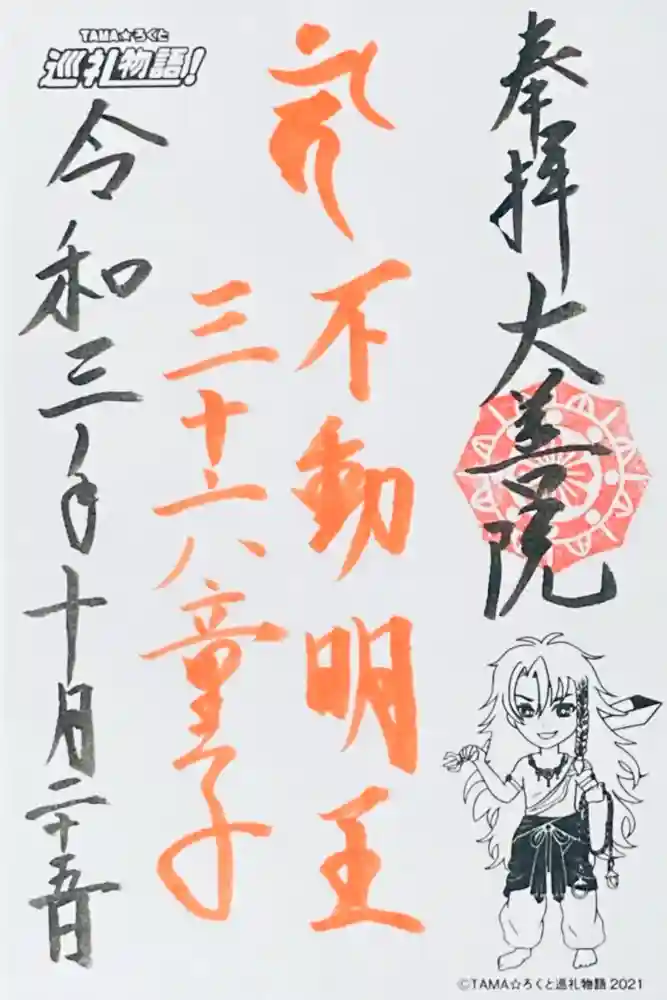 奉拝 大善院
不動明王
三十六童子
令和三年十月二十五日
TAMA☆ろくと
巡礼物語!
©TAMA☆ろくと巡礼物語 2021